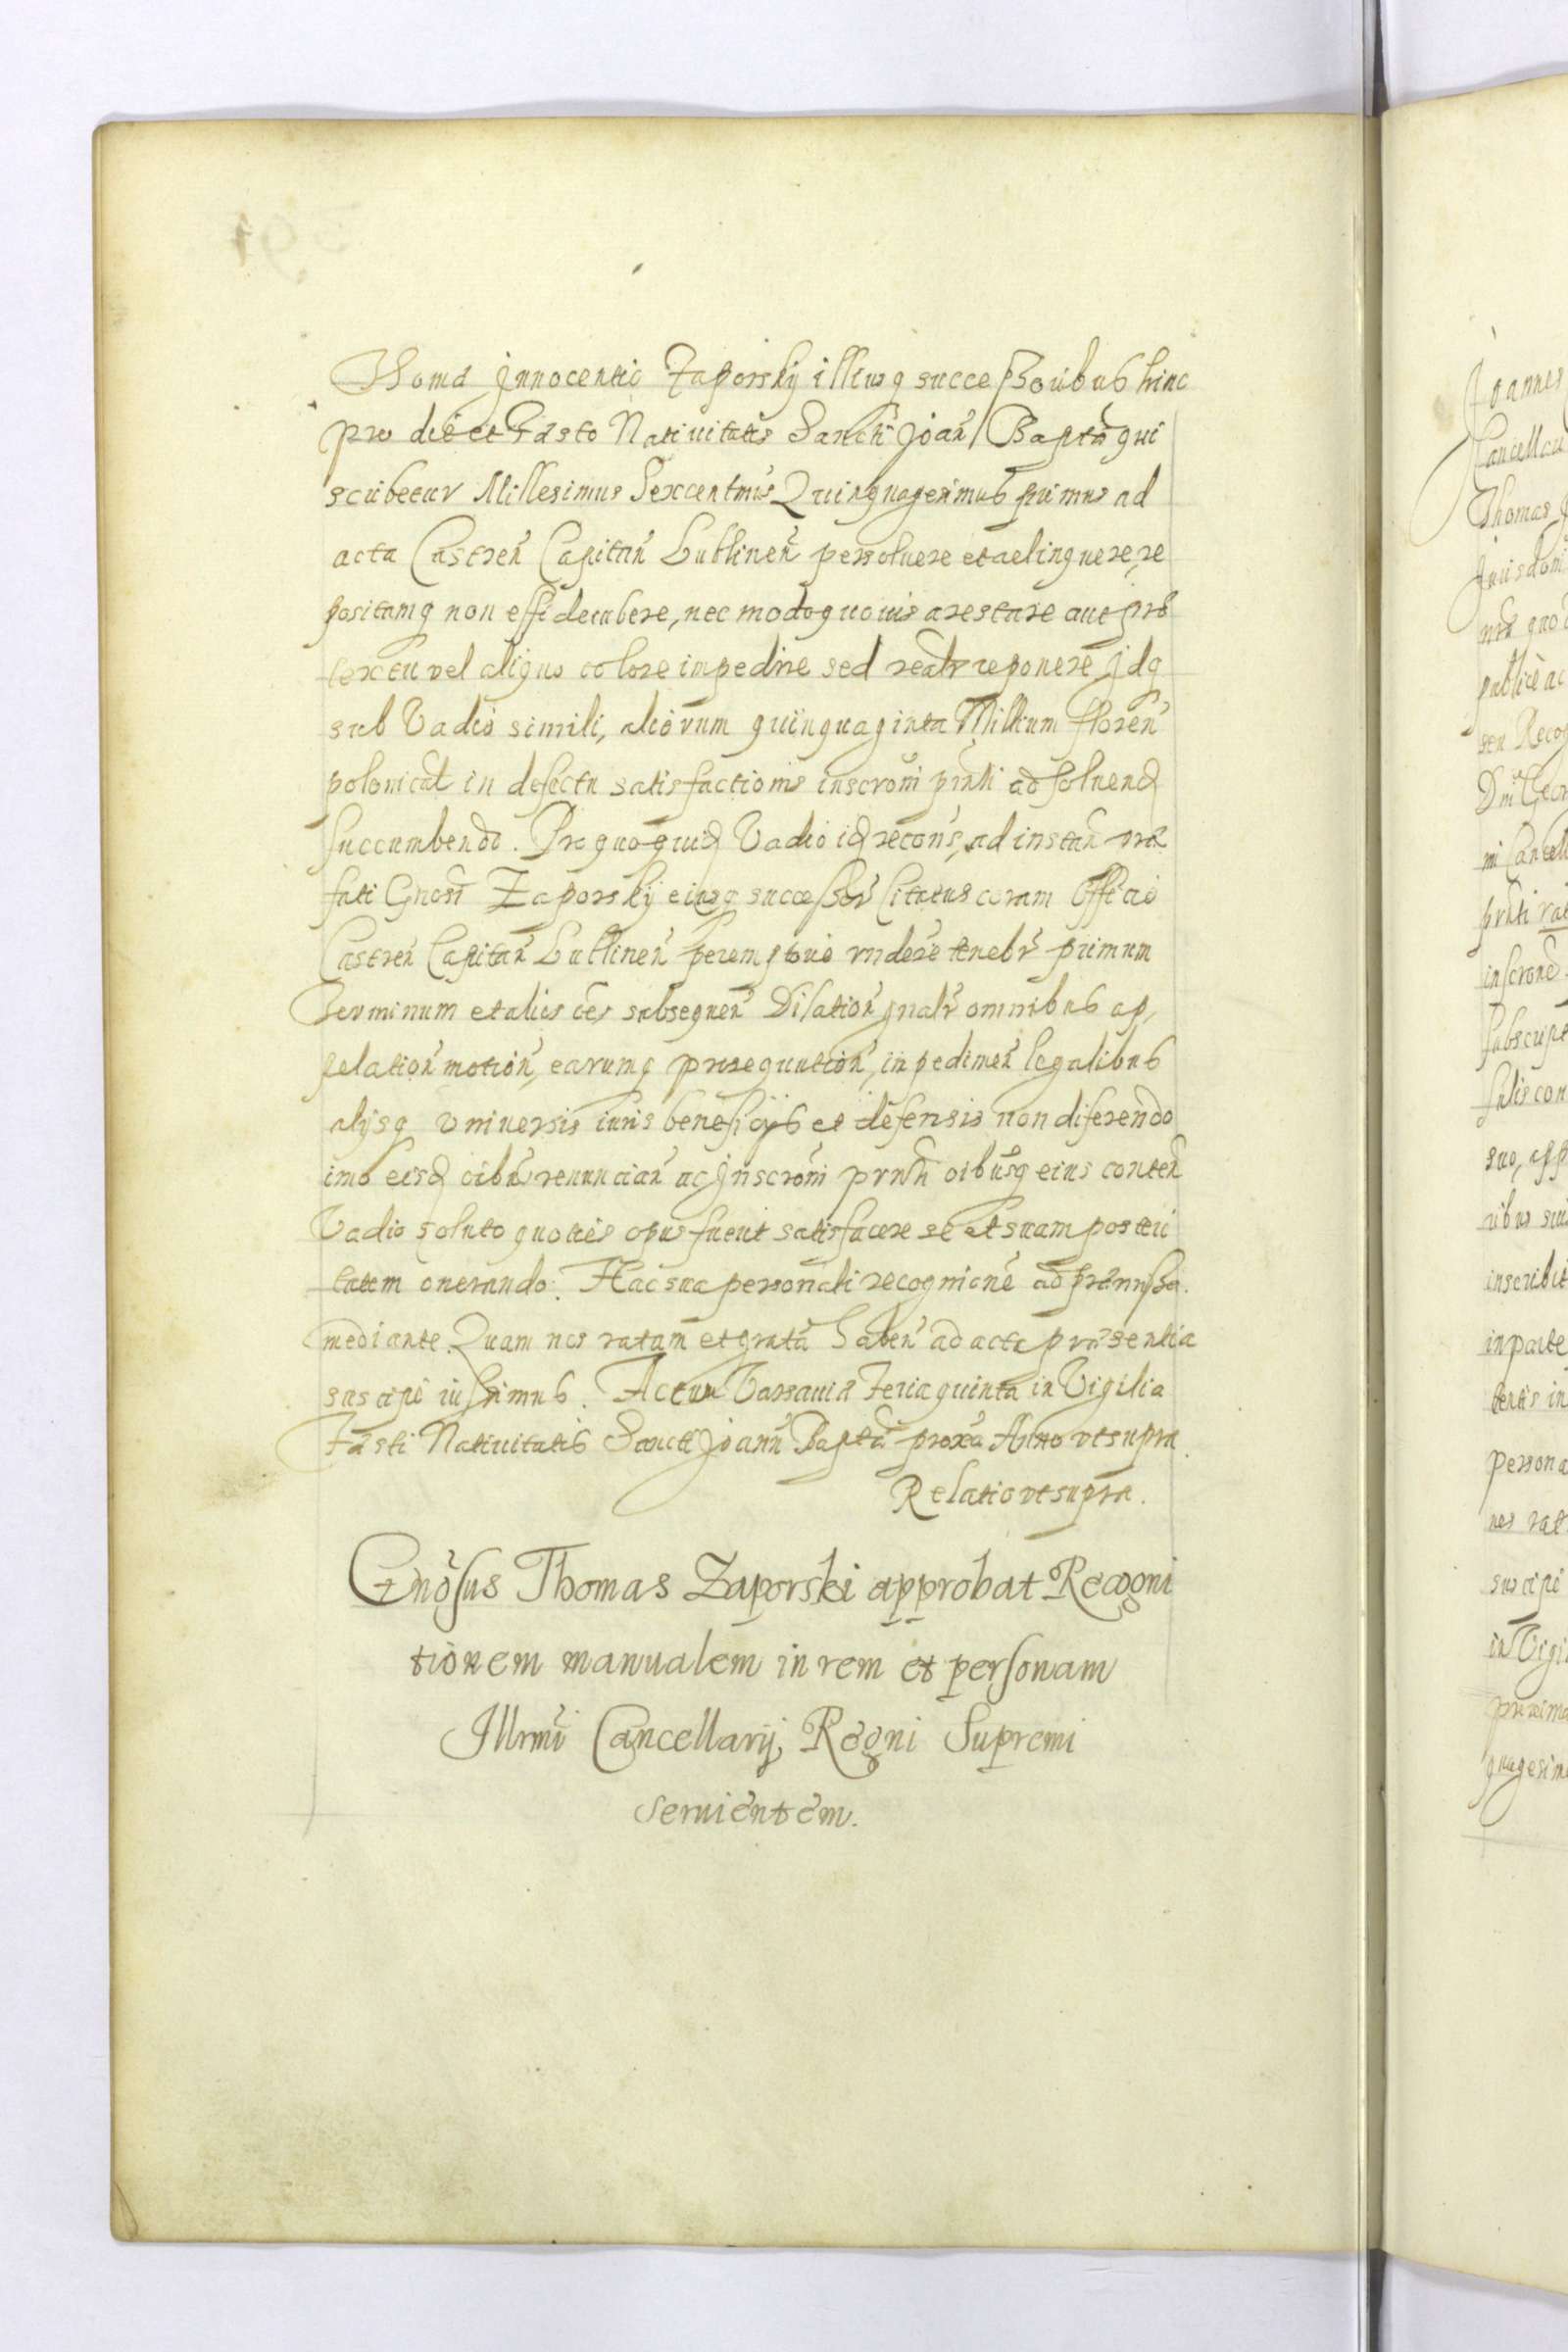 Thoma Innocentio Zaporskij illiusq successoribus hinc
pro die et Festo Natiuitatis Sancti Joan Bapta qui
scribetur Millesimus Sexcentmus Quinquagesimus primus ad
acta Castren Capitan Lublinen persoluere et aelinquere, re
positamq non effi decubere, nec modo quouis arestare aut prae
textu vel aliquo colore impedire sed realr reponere Jdq
sub Vadio simili, aliorum quinquaginta Millium floren
polonical in defectu satisfactionis inscroni prnti ad soluend
succumbendo. Pro quo quid Vadio id recons, ad instan prae
fati Gnosi Zaporskij eiusq successor Citatus coram Officio
Castren Capitan Lublinen peremptorie rndere tenebr primum
Terminum et alias ces subsequen Dilation gnalr omnibus ap,
pelation motion, earumq prosequution, inpedimen legalibus
alijsq vniuersis iuris beneficijs et defensis non diferendo
imo eisd oibus renuncian ac Jnscroni prnti oibusq eius conten
Vadio soluto quoties opus fuerit satisfacere se et suam posteri
tatem onerando. Hac sua personali recognicne ad praemissa
mediante. Quam nos ratam et grata haben ad acta praesentia
suscipi iussimus. Actum Varsauia Feria quinta in Vigilia
Festi Natiuitatis Sancti Joann Bapta proxa Anno vt supra.
Relatio vt supra.
Gnosus Thomas Zaporski approbat Recogni
tionem manualem in rem et personam
Illrmi Cancellarij Regni Supremi
seruientem.
Joannes
Cancellari
Thomas J
publice ac
seu Recog
mi Cancell
prnti rat
inscrone
subscript
inscribit
in parte
persona
nos rat
suscipi
in Vigi
proxima
quagesim